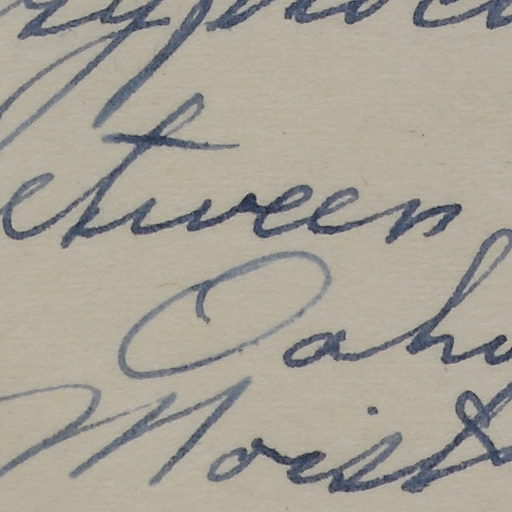 etween
Oahu
Moist